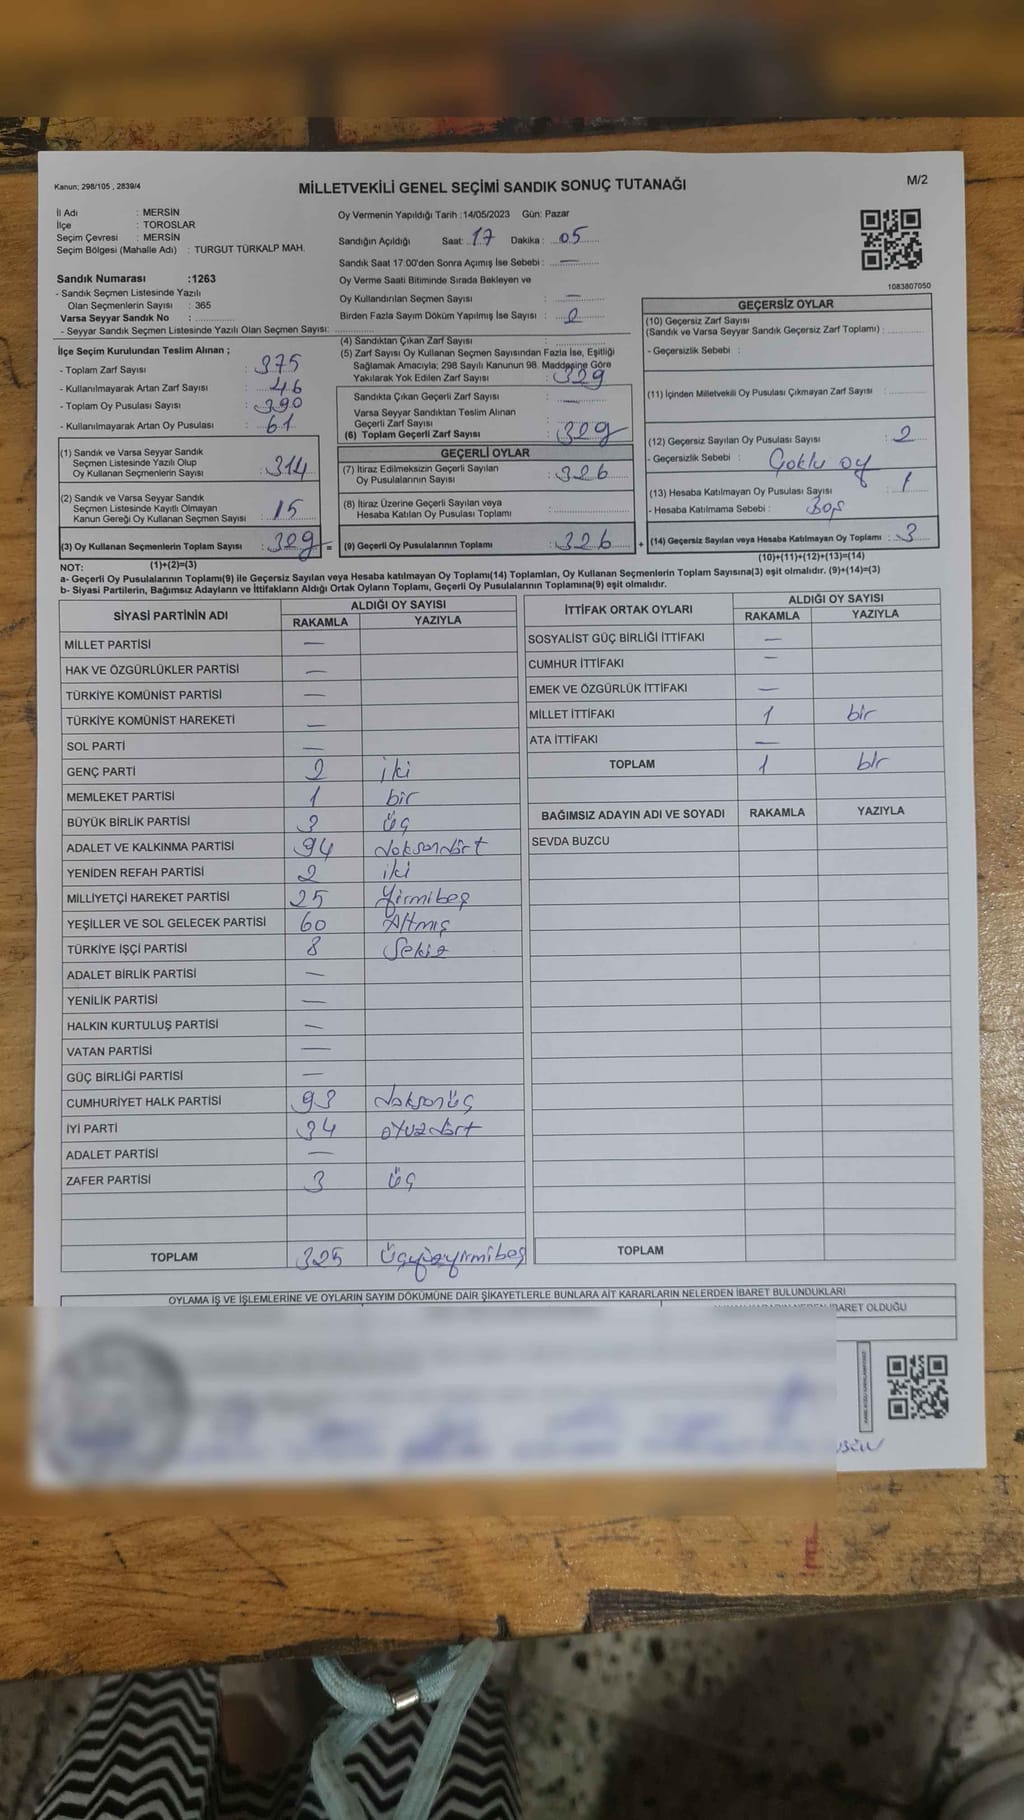 Kanun; 298/105 , 2839/4
MİLLETVEKİLİ GENEL SEÇİMİ SANDIK SONUÇ TUTANAĞI
M/2
İl Adı : MERSİN
İlçe : TOROSLAR
Seçim Çevresi : MERSİN
Seçim Bölgesi (Mahalle Adı) : TURGUT TÜRKALP MAH.
Sandık Numarası :1263
- Sandık Seçmen Listesinde Yazılı
Olan Seçmenlerin Sayısı : 365
Varsa Seyyar Sandık No :
- Seyyar Sandık Seçmen Listesinde Yazılı Olan Seçmen Sayısı:
Oy Vermenin Yapıldığı Tarih :14/05/2023 Gün: Pazar
Sandığın Açıldığı Saat: 17 Dakika : 05
Sandık Saat 17:00'den Sonra Açımış İse Sebebi : —
Oy Verme Saati Bitiminde Sırada Bekleyen ve
Oy Kullandırılan Seçmen Sayısı : —
Birden Fazla Sayım Döküm Yapılmış İse Sayısı : 2
1083807050
İlçe Seçim Kurulundan Teslim Alınan ;
- Toplam Zarf Sayısı : 375
- Kullanılmayarak Artan Zarf Sayısı : 46
- Toplam Oy Pusulası Sayısı : 390
- Kullanılmayarak Artan Oy Pusulası : 61
(1) Sandık ve Varsa Seyyar Sandık
Seçmen Listesinde Yazılı Olup
Oy Kullanan Seçmenlerin Sayısı : 314
(2) Sandık ve Varsa Seyyar Sandık
Seçmen Listesinde Kayıtlı Olmayan
Kanun Gereği Oy Kullanan Seçmen Sayısı : 15
(3) Oy Kullanan Seçmenlerin Toplam Sayısı : 329 =
(1)+(2)=(3)
(4) Sandıktan Çıkan Zarf Sayısı :
(5) Zarf Sayısı Oy Kullanan Seçmen Sayısından Fazla İse, Eşitliği
Sağlamak Amacıyla; 298 Sayılı Kanunun 98. Maddesine Göre
Yakılarak Yok Edilen Zarf Sayısı : 329
Sandıkta Çıkan Geçerli Zarf Sayısı : —
Varsa Seyyar Sandıktan Teslim Alınan
Geçerli Zarf Sayısı
(6) Toplam Geçerli Zarf Sayısı : 329
GEÇERLİ OYLAR
(7) İtiraz Edilmeksizin Geçerli Sayılan
Oy Pusulalarının Sayısı : 326
(8) İtiraz Üzerine Geçerli Sayılan veya
Hesaba Katılan Oy Pusulası Toplamı :
(9) Geçerli Oy Pusulalarının Toplamı : 326 +
GEÇERSİZ OYLAR
(10) Geçersiz Zarf Sayısı
(Sandık ve Varsa Seyyar Sandık Geçersiz Zarf Toplamı) :
- Geçersizlik Sebebi :
(11) İçinden Milletvekili Oy Pusulası Çıkmayan Zarf Sayısı :
(12) Geçersiz Sayılan Oy Pusulası Sayısı : 2
- Geçersizlik Sebebi : Çoklu oy
(13) Hesaba Katılmayan Oy Pusulası Sayısı : 1
- Hesaba Katılmama Sebebi : Boş
(14) Geçersiz Sayılan veya Hesaba Katılmayan Oy Toplamı : 3
(10)+(11)+(12)+(13)=(14)
NOT:
a- Geçerli Oy Pusulalarının Toplamı(9) ile Geçersiz Sayılan veya Hesaba katılmayan Oy Toplamı(14) Toplamları, Oy Kullanan Seçmenlerin Toplam Sayısına(3) eşit olmalıdır. (9)+(14)=(3)
b- Siyasi Partilerin, Bağımsız Adayların ve İttifakların Aldığı Ortak Oyların Toplamı, Geçerli Oy Pusulalarının Toplamına(9) eşit olmalıdır.
SİYASİ PARTİNİN ADI ALDIĞI OY SAYISI
RAKAMLA YAZIYLA
MİLLET PARTİSİ —
HAK VE ÖZGÜRLÜKLER PARTİSİ —
TÜRKİYE KOMÜNİST PARTİSİ —
TÜRKİYE KOMÜNİST HAREKETİ —
SOL PARTİ —
GENÇ PARTİ 2 iki
MEMLEKET PARTİSİ 1 bir
BÜYÜK BİRLİK PARTİSİ 3 üç
ADALET VE KALKINMA PARTİSİ 94 doksandört
YENİDEN REFAH PARTİSİ 2 iki
MİLLİYETÇİ HAREKET PARTİSİ 25 Yirmibeş
YEŞİLLER VE SOL GELECEK PARTİSİ 60 Altmış
TÜRKİYE İŞÇİ PARTİSİ 8 Sekiz
ADALET BİRLİK PARTİSİ —
YENİLİK PARTİSİ —
HALKIN KURTULUŞ PARTİSİ —
VATAN PARTİSİ —
GÜÇ BİRLİĞİ PARTİSİ —
CUMHURİYET HALK PARTİSİ 93 doksanüç
İYİ PARTİ 34 otuzdört
ADALET PARTİSİ —
ZAFER PARTİSİ 3 üç
TOPLAM 325 Üçyüzyirmibeş
İTTİFAK ORTAK OYLARI ALDIĞI OY SAYISI
RAKAMLA YAZIYLA
SOSYALİST GÜÇ BİRLİĞİ İTTİFAKI —
CUMHUR İTTİFAKI —
EMEK VE ÖZGÜRLÜK İTTİFAKI —
MİLLET İTTİFAKI 1 bir
ATA İTTİFAKI —
TOPLAM 1 bir
BAĞIMSIZ ADAYIN ADI VE SOYADI RAKAMLA YAZIYLA
SEVDA BUZCU
TOPLAM
OYLAMA İŞ VE İŞLEMLERİNE VE OYLARIN SAYIM DÖKÜMÜNE DAİR ŞİKAYETLERLE BUNLARA AİT KARARLARIN NELERDEN İBARET BULUNDUKLARI
İBARET OLDUĞU